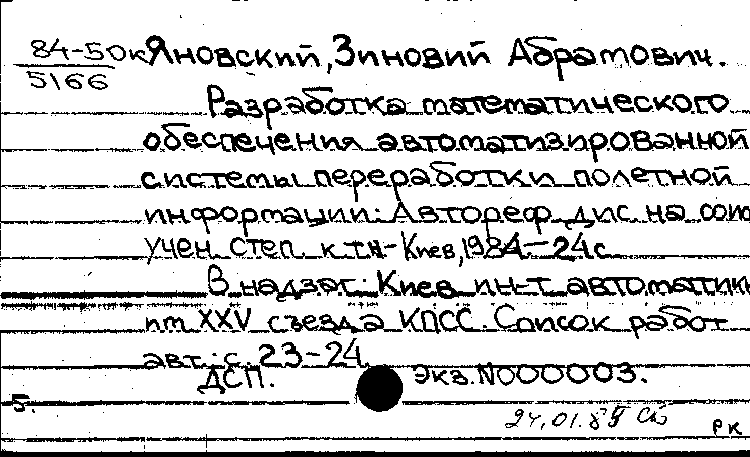 84-50к Яновский, Зиновий Абрамович.
5166
Разработка математического
обеспечения автоматизированной
системы переработки полетной
информации: Автореф. дис. на соис
учен. степ. к.т.н.- Киев, 1984.- 24с
В надзаг.: Киев. ин-т автоматики
им. XXV съезда КПСС. Список работ
авт.: с. 23-24
ДСП. Экз. N000003.
5.
24.01.85
РК